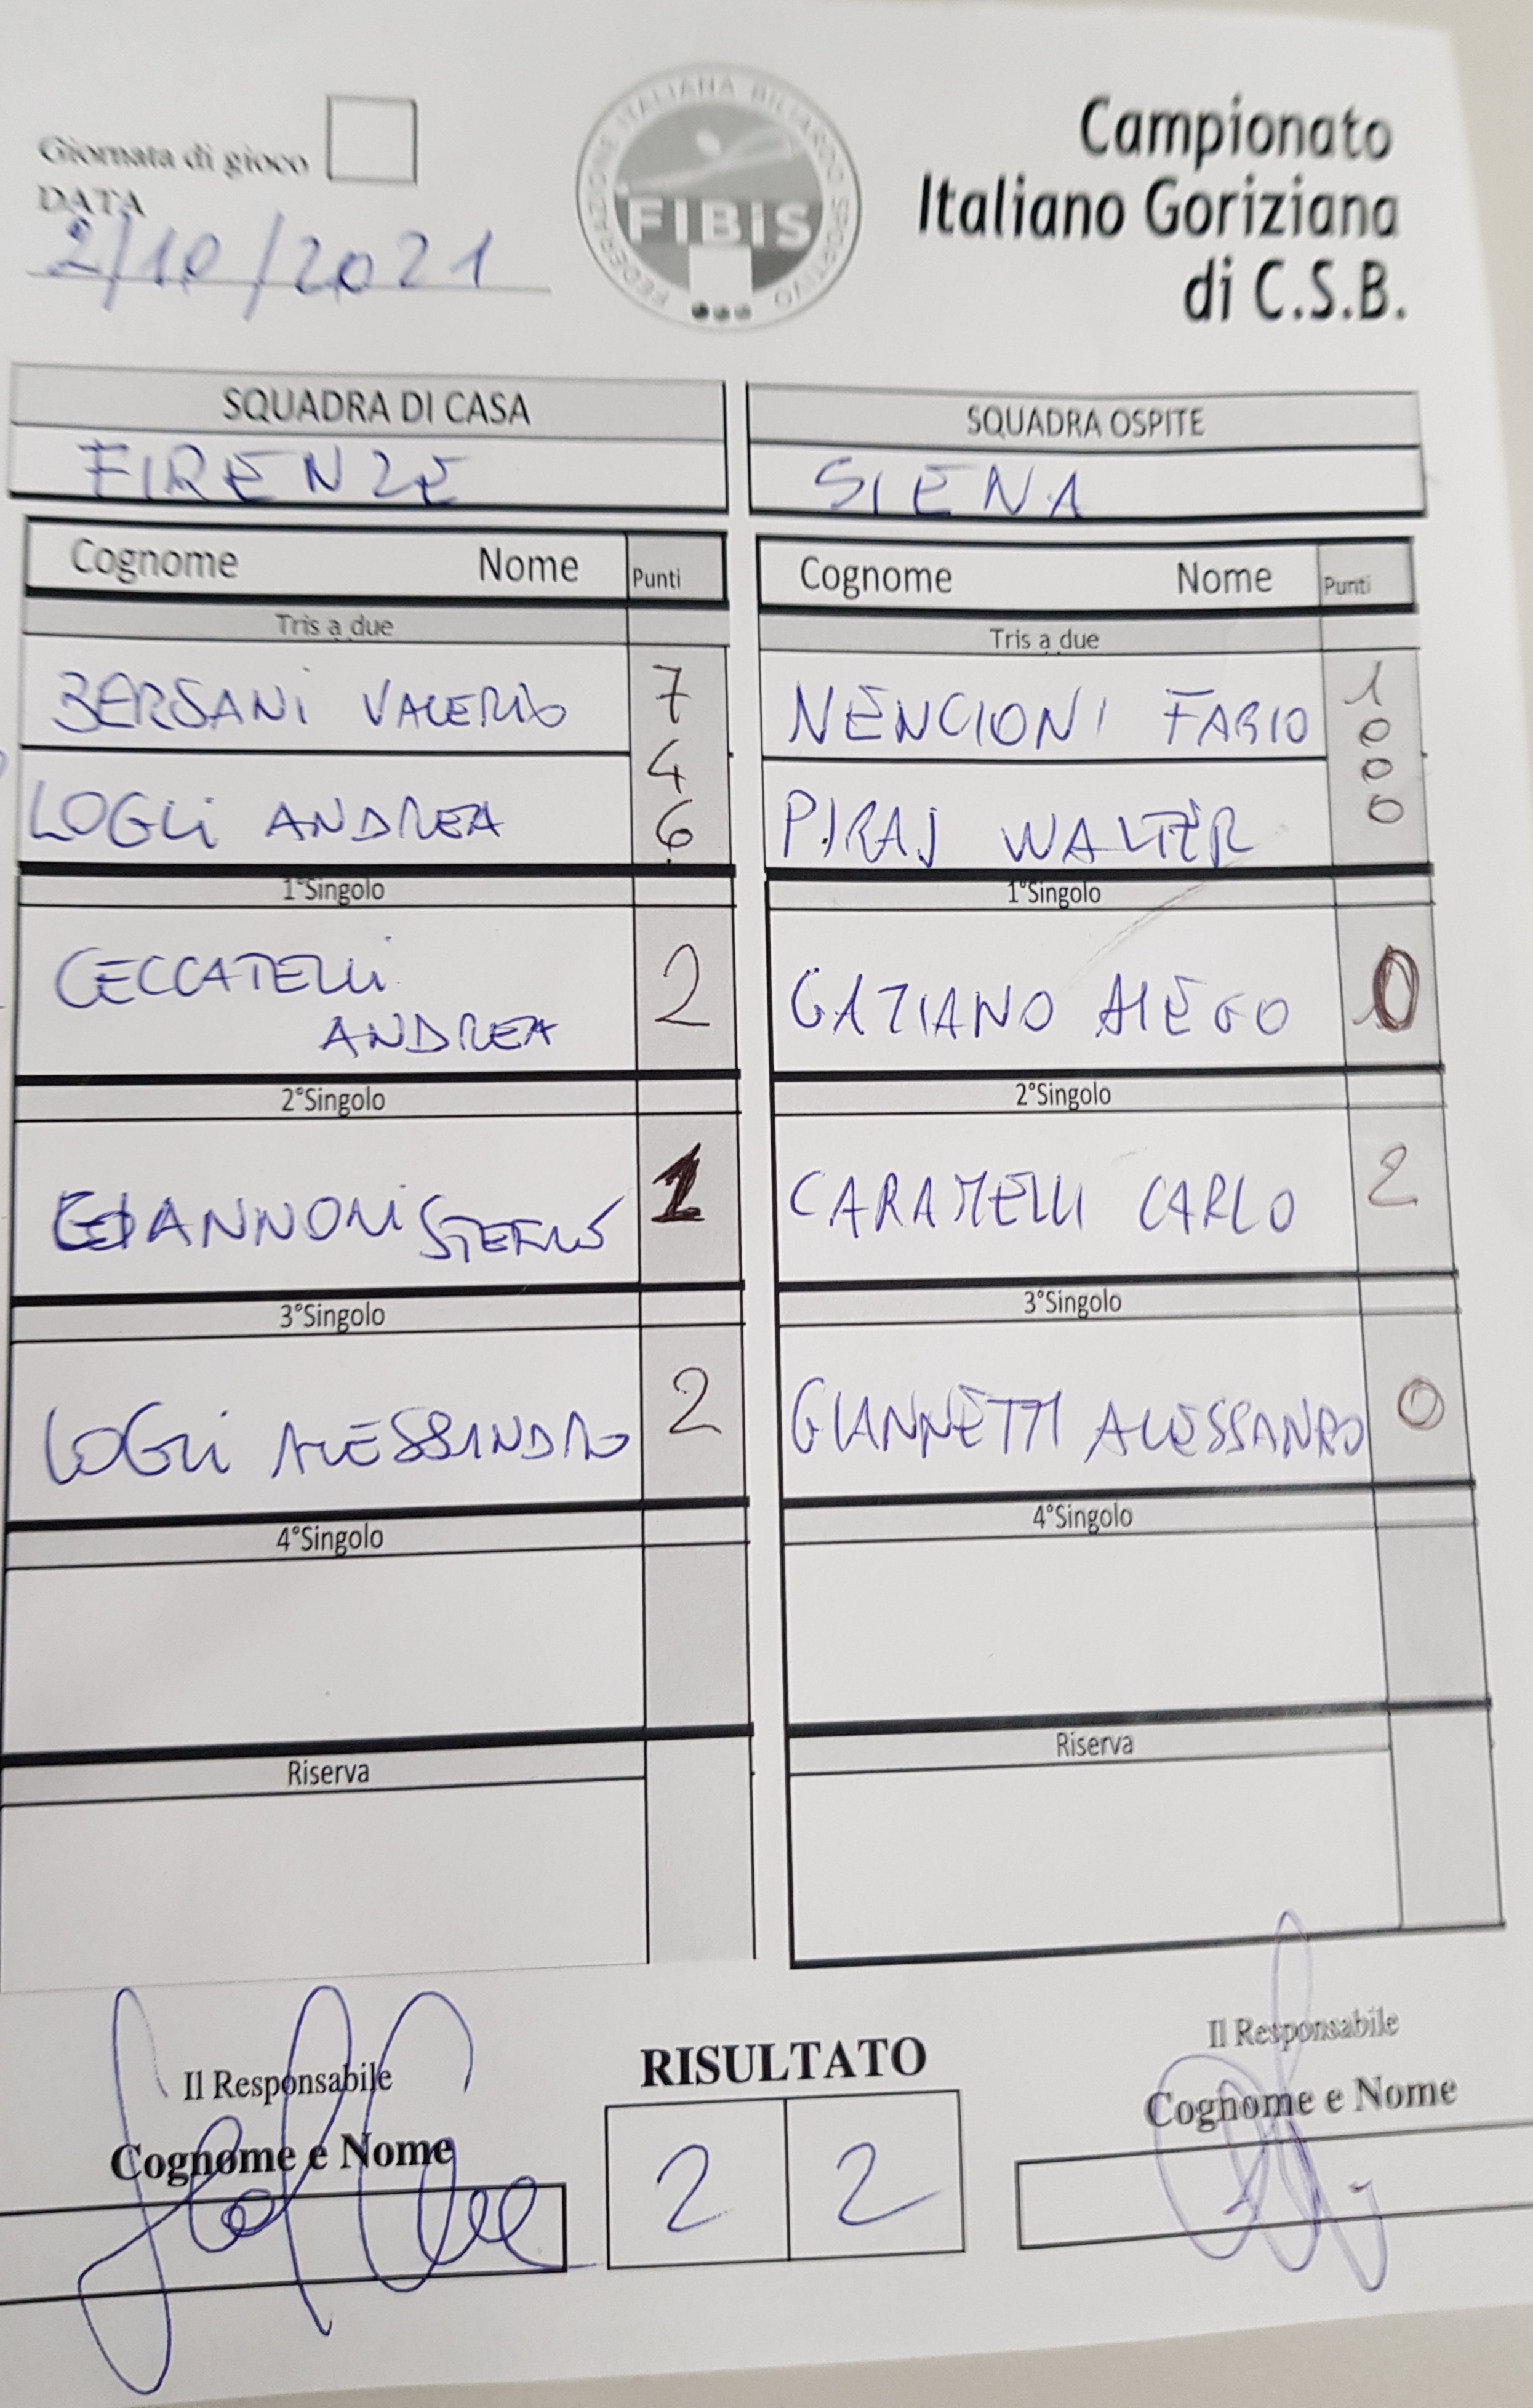 Giornata di gioco
DATA
2/10/2021
FEDERAZIONE ITALIANA BILIARDO SPORTIVO
FIBIS
Campionato
Italiano Goriziana
di C.S.B.
SQUADRA DI CASA
FIRENZE
SQUADRA OSPITE
SIENA
Cognome Nome Punti
Tris a due
BERSANI VALERIO 7
4
LOGLI ANDREA 6
1°Singolo
CECCATELLI
ANDREA 2
2°Singolo
GIANNONI STEFANO 1
3°Singolo
LOGLI ALESSANDRO 2
4°Singolo
Riserva
Cognome Nome Punti
Tris a due
NENCIONI FABIO 1
0
0
PIRAJ WALTER 0
1°Singolo
GAZIANO 0
2°Singolo
CARAMELLI CARLO 2
3°Singolo
GIANNETTI ALESSANRO 0
4°Singolo
Riserva
Il Responsabile
Cognome e Nome
RISULTATO
2 2
Il Responsabile
Cognome e Nome